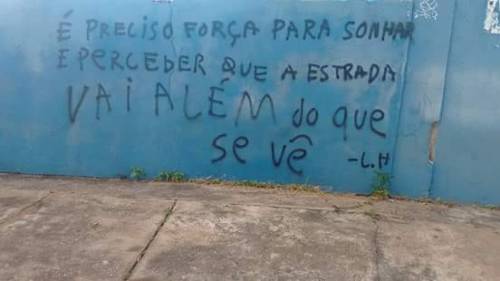 É PRECISO FORÇA PARA SONHAR
E PERCEBER QUE A ESTRADA
VAI ALÉM do que
se vê -L.H